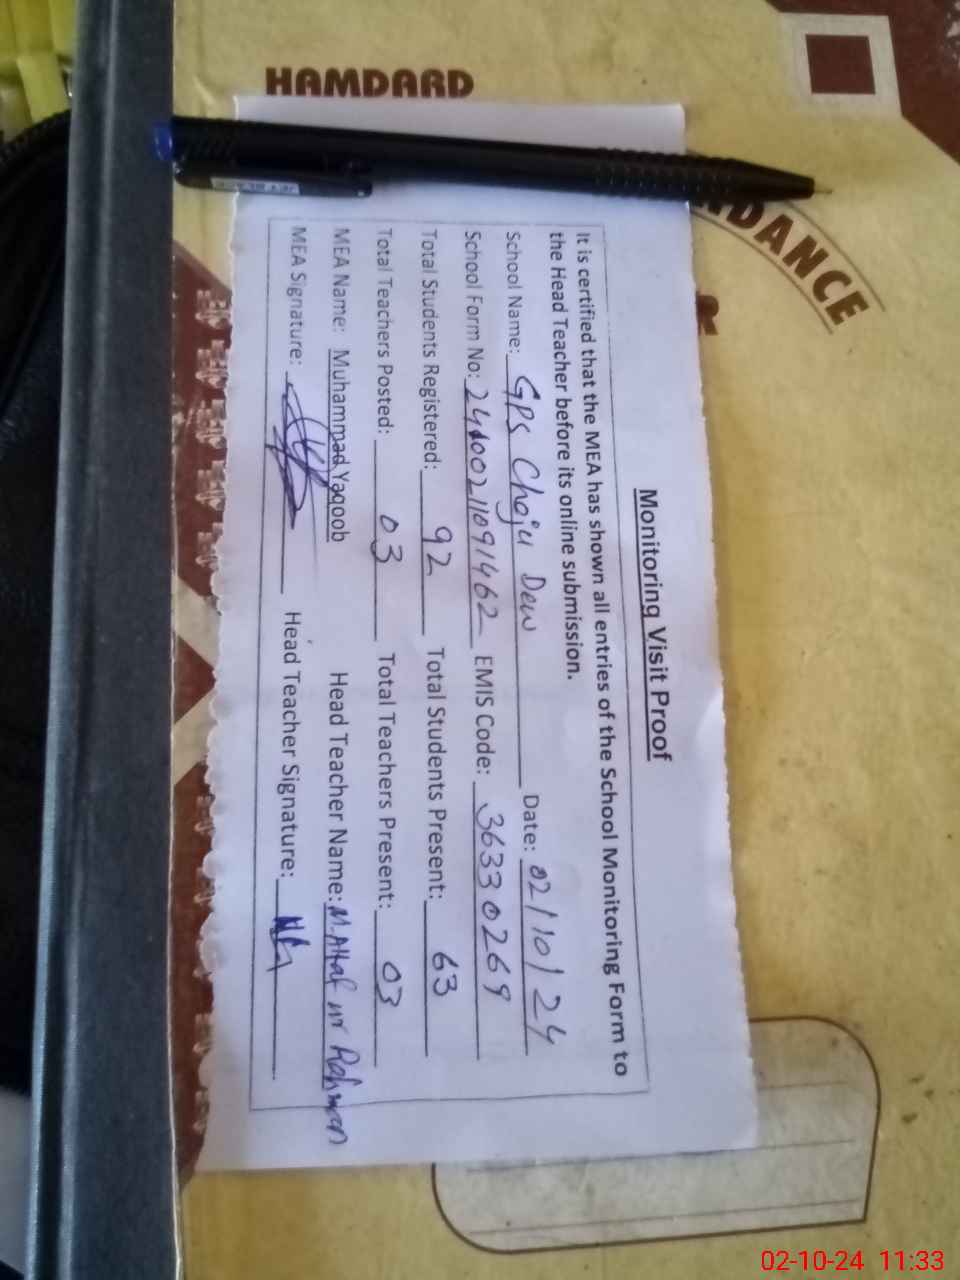 HAMDARD
NDANCE
&
Monitoring Visit Proof
It is certified that the MEA has shown all entries of the School Monitoring Form to
the Head Teacher before its online submission.
School Name: GPS Choju Dew Date: 02/10/24
School Form No: 24100211091462 EMIS Code: 36330269
Total Students Registered: 92 Total Students Present: 63
Total Teachers Posted: 03 Total Teachers Present: 03
MEA Name: Muhammad Yaqoob Head Teacher Name: M. Altaf ur Rahman
MEA Signature: Head Teacher Signature:
02-10-24 11:33